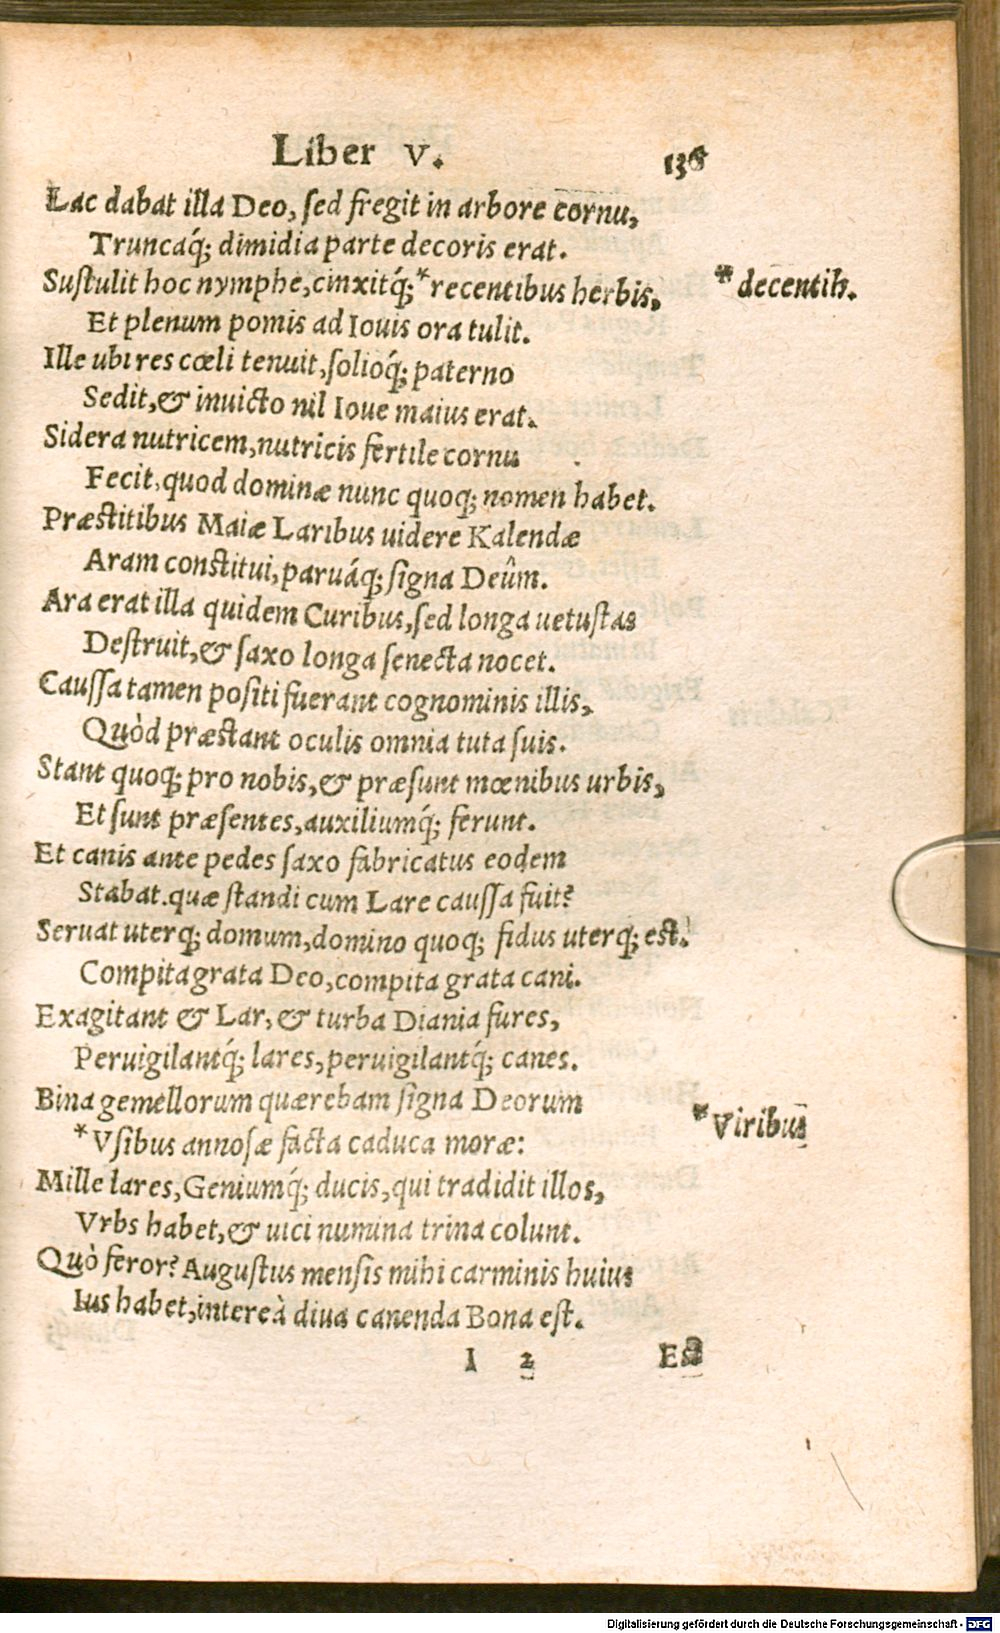 Liber V. 136
Lac dabat illa Deo, sed fregit in arbore cornu,
Truncaq́; dimidia parte decoris erat.
Sustulit hoc nymphe, cinxitq́; *recentibus herbis, * decentib.
Et plenum pomis ad Iouis ora tulit.
Ille ubi res cœli tenuit, solioq́; paterno
Sedit, & inuicto nil Ioue maius erat.
Sidera nutricem, nutricis fertile cornu
Fecit, quod dominæ nunc quoq; nomen habet.
Præstitibus Maiæ Laribus uidere Kalendæ
Aram constitui, paruáq; signa Deûm.
Ara erat illa quidem Curibus, sed longa uetustas
Destruit, & saxo longa senecta nocet.
Caussa tamen positi fuerant cognominis illis,
Quòd præstant oculis omnia tuta suis.
Stant quoq; pro nobis, & præsunt mœnibus urbis,
Et sunt præsentes, auxiliumq́; ferunt.
Et canis ante pedes saxo fabricatus eodem
Stabat. quæ standi cum Lare caussa fuit?
Seruat uterq; domum, domino quoq; fidus uterq; est.
Compita grata Deo, compita grata cani.
Exagitant & Lar, & turba Diania fures,
Peruigilantq́; lares, peruigilantq́; canes.
Bina gemellorum quærebam signa Deorum
*Vsibus annosæ facta caduca moræ: * Viribus
Mille lares, Geniumq́; ducis, qui tradidit illos,
Vrbs habet, & uici numina trina colunt.
Quò feror? Augustus mensis mihi carminis huius
Ius habet, intereà diua canenda Bona est.
I 2 Est
Digitalisierung gefördert durch die Deutsche Forschungsgemeinschaft - DFG